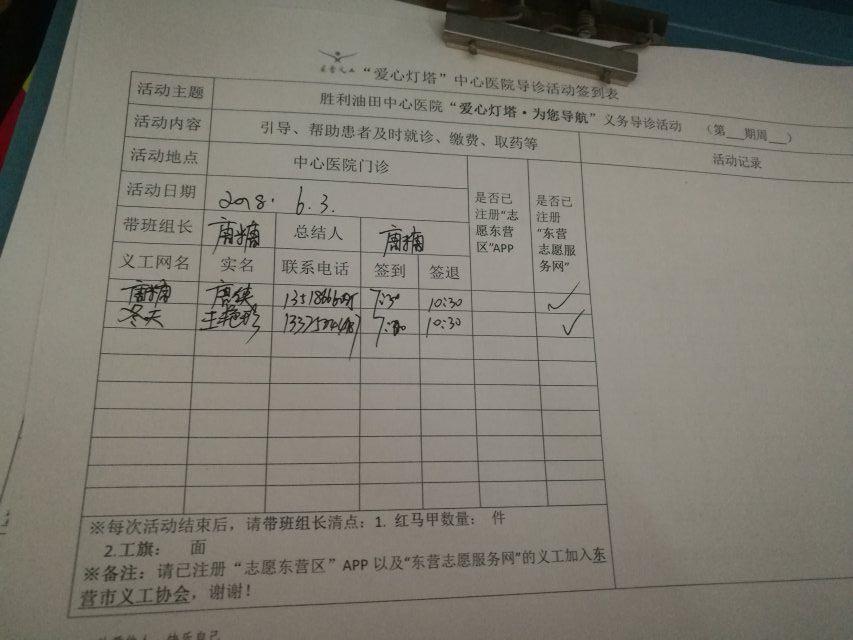 东营义工 “爱心灯塔”中心医院导诊活动签到表
活动主题 胜利油田中心医院“爱心灯塔·为您导航”义务导诊活动 （第___期周___）
活动内容 引导、帮助患者及时就诊、缴费、取药等 活动记录
活动地点 中心医院门诊
是否已注册“志愿东营区”APP
是否已注册“东营志愿服务网”
活动日期 2018. 6.3.
带班组长 唐糖 总结人 唐糖
义工网名 实名 联系电话 签到 签退
唐糖 7:30 10:30 ✓
冬天 王艳彤 7:30 10:30 ✓
※每次活动结束后，请带班组长清点：1. 红马甲数量： 件
2.工旗： 面
※备注：请已注册“志愿东营区”APP 以及“东营志愿服务网”的义工加入东
营市义工协会，谢谢！